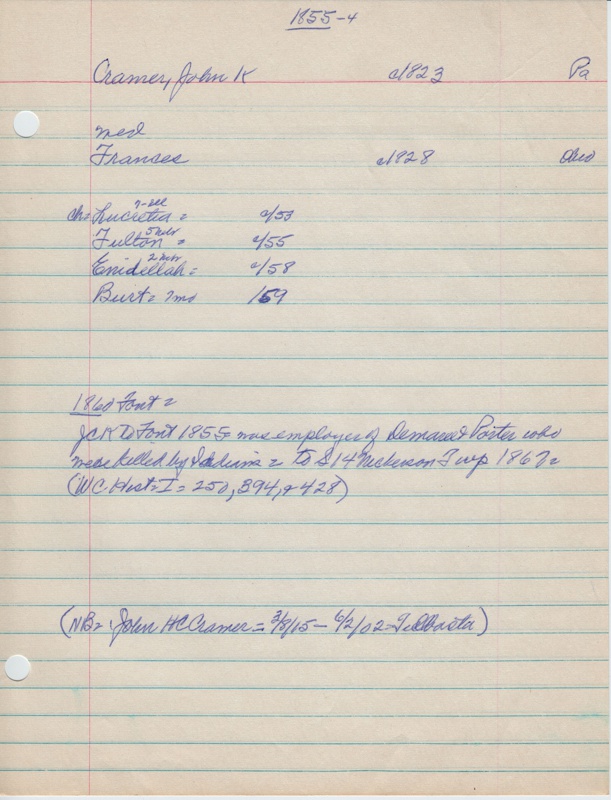 1855-4
Cramer, John K c1823 Pa
med
Frances c1828 Ohio
7-
ch= Lucretia = c/53
5
Fulton = c/55
2
Enidellah = c/58
Burt = 7mo /59
1860 Font =
JCK To Font 1855 = was employer of Demarest Porter who
were killed by Indians = To S14 Nickerson Twp 1867=
(WC Hist=I = 250, 394, + 428)
(NB= John HC Cramer = 3/8/15 - 6/2/02 =